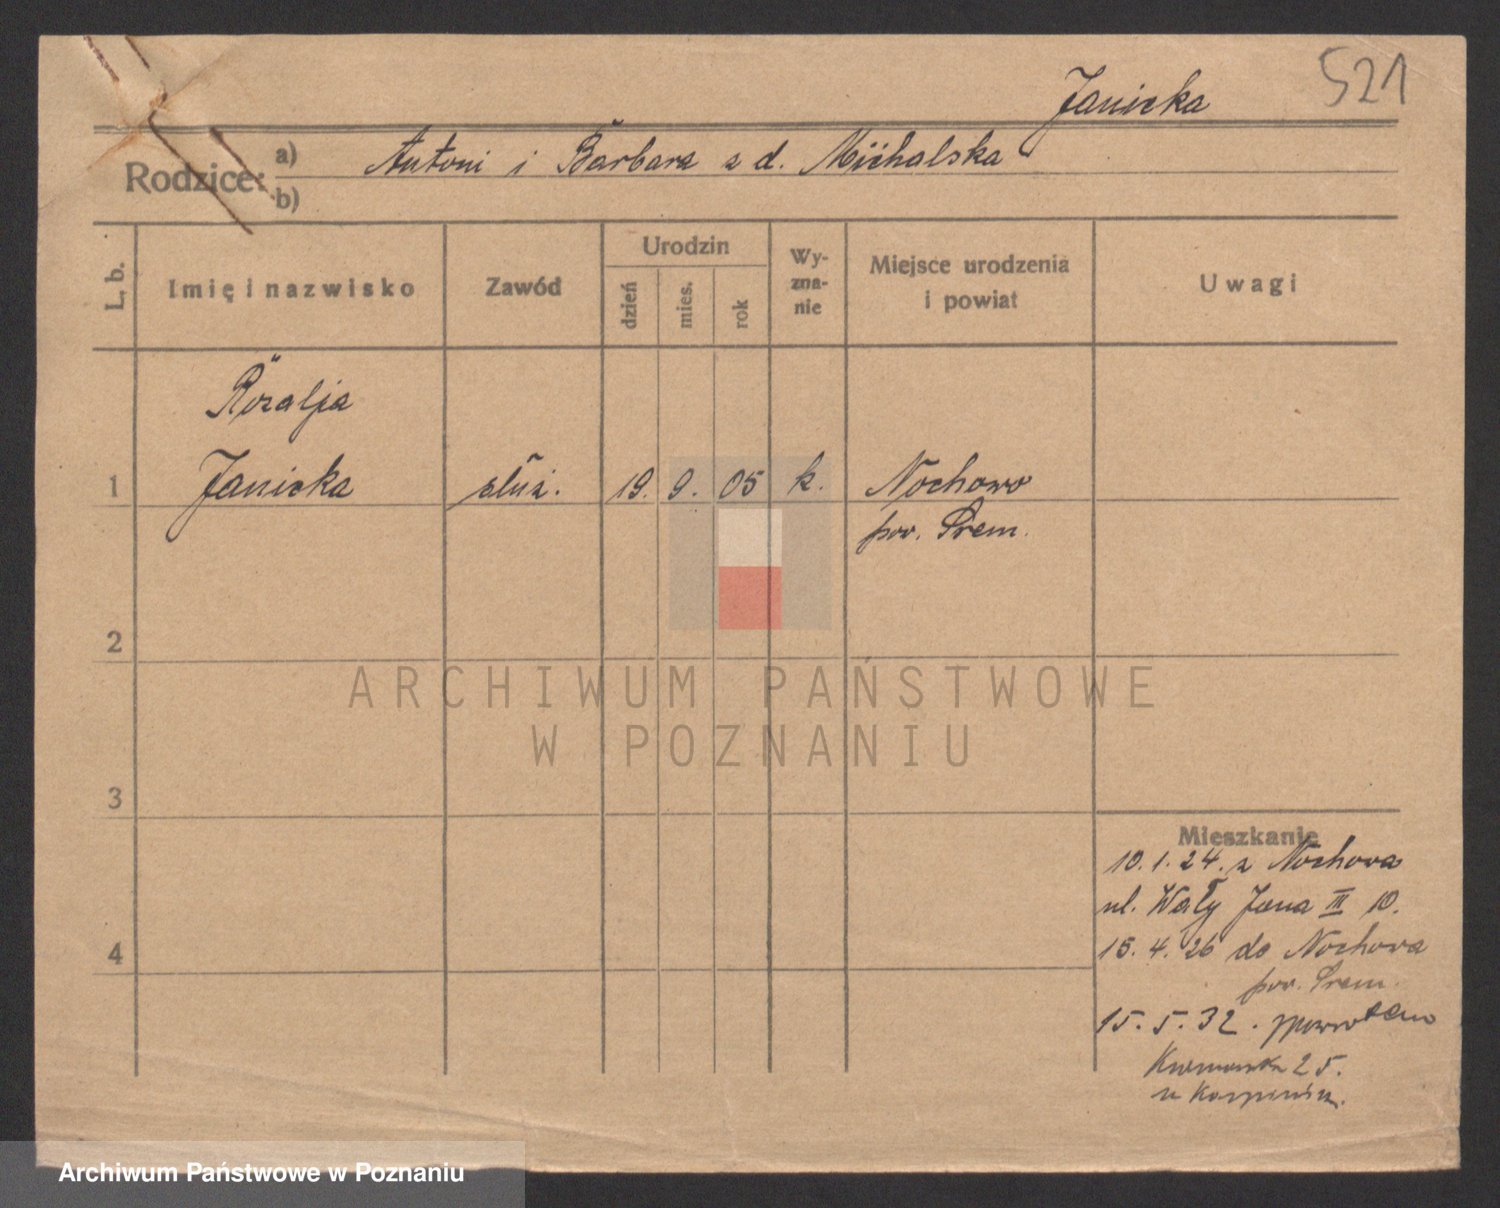 521
Janicka
Rodzice: a) Antoni i Barbara z d. Michalska
b)
L. b.
Imię i nazwisko
Zawód
Urodzin
dzień
mies.
rok
Wy-
zna-
nie
Miejsce urodzenia
i powiat
Uwagi
Rozalja
1 Janicka służ. 19. 9. 05 k. Nochowo
pow. Śrem.
2
ARCHIWUM PAŃSTWOWE
W POZNANIU
3
Mieszkanie
10.1.24. z Nochowa
ul. Wały Jana III 10.
4
15.4.26 do Nochowa
pow. Śrem.
15.5.32. spowrotem
25.
u
Archiwum Państwowe w Poznaniu